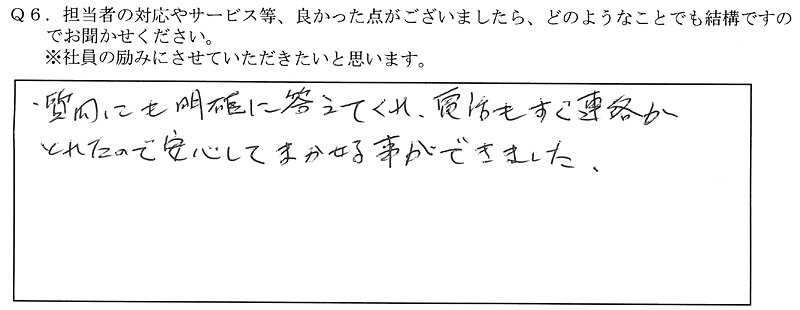 Q6．担当者の対応やサービス等、良かった点がございましたら、どのようなことでも結構ですの
でお聞かせください。
※社員の励みにさせていただきたいと思います。
・質問にも明確に答えてくれ、電話もすぐ連絡が
とれたので安心してまかせる事ができました、